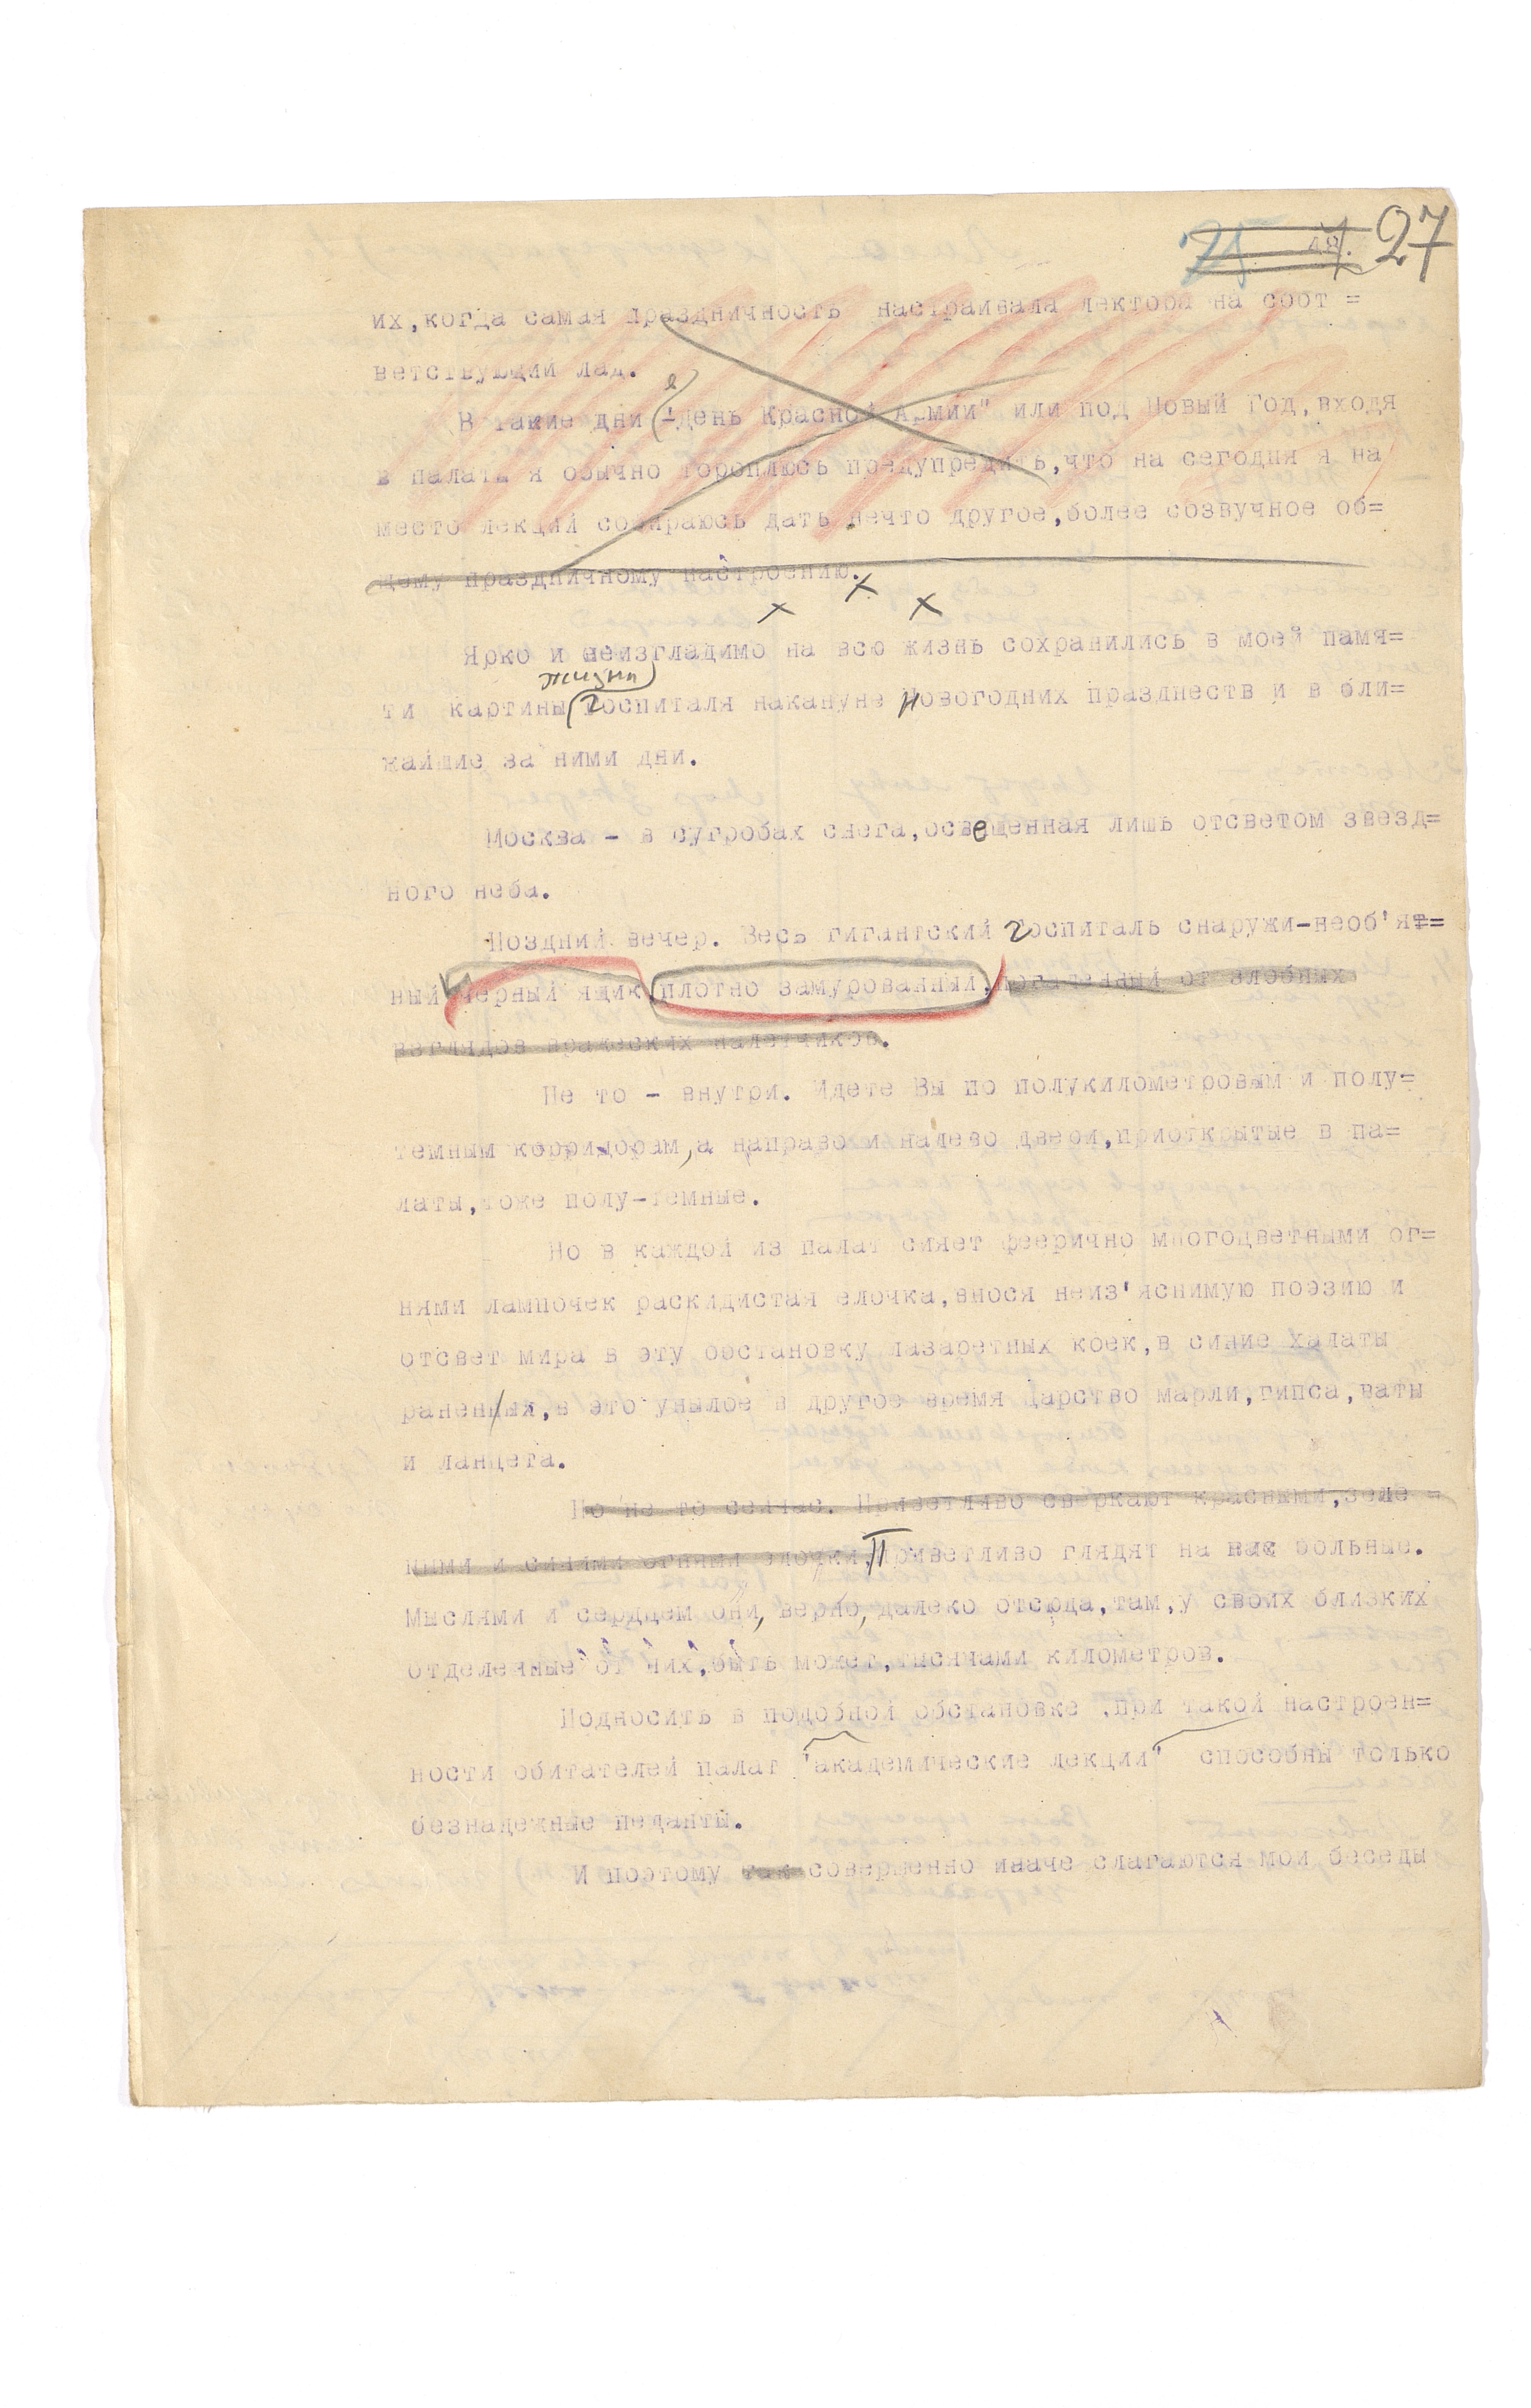 25 48. 27
их,когда самая праздничность настраивала лектора на соот =
ветствующий лад.
В такие дни "День Красной Армии" или под Новый Год,входя
в палаты я обычно тороплюсь предупредить,что на сегодня я на
место лекций собираюсь дать нечто другое,более созвучное об=
щему праздничному настроению.
х х х
Ярко и неизгладимо на всю жизнь сохранились в моей памя=
жизни
ти картины госпиталя накануне новогодних празднеств и в бли=
жайшие за ними дни.
Москва - в сугробах снега,освещенная лишь отсветом звезд=
ного неба.
Поздний вечер. Весь гигантский госпиталь снаружи-необ'ят=
ный черный ящик плотно замурованный, от злобных
взглядов вражеских налетчиков.
Не то - внутри. Идете Вы по полукилометровым и полу=
темным корридорам,а направо и налево двери,приоткрытые в па=
латы,тоже полу-темные.
Но в каждой из палат сияет феерично многоцветными ог=
нями лампочек раскидистая елочка,внося неиз'яснимую поэзию и
отсвет мира в эту обстановку лазаретных коек,в синие халаты
раненных,в это унылое в другое время царство марли,гипса,ваты
и ланцета.
Но не то сейчас. Приветливо сверкают красными,зеле =
ными и синими огнями елочки,Приветливо глядят на нас больные.
Мыслями и сердцем они, верно, далеко отсюда,там,у своих близких
отделенные от них,быть может,тысячами километров.
Подносить в подобной обстановке ,при такой настроен=
ности обитателей палат "академические лекции" способны только
безнадежные педанты.
И поэтому так совершенно иначе слагаются мои беседы